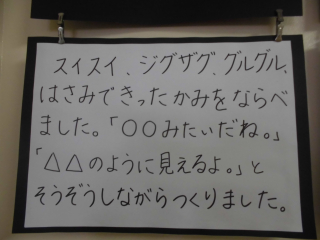 スイスイ、ジグザグ、グルグル、
はさみできったかみをならべ
ました。「○○みたいだね。」
「△△のように見えるよ。」と
そうぞうしながらつくりました。